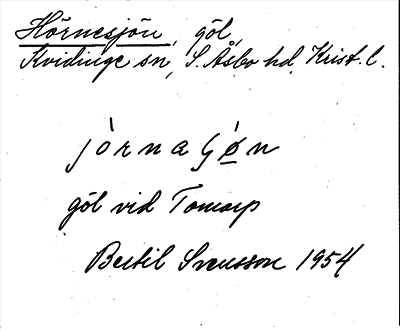 Hörnesjön, göl,
Kvidinge sn, S. Åsbo hd, Krist. l.
göl vid Tomarp
Bertil Svensson 1954